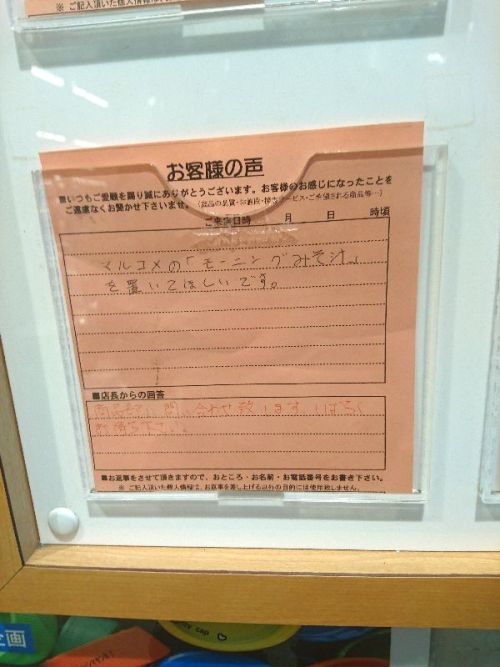 お客様の声
■いつもご愛顧を賜り誠にありがとうございます。お客様のお感じになったことを
ご遠慮なくお聞かせ下さいませ。
ご来店日時 月 日 時頃
マルコメの「モーニングみそ汁」
を置いてほしいです。
■店長からの回答
問い合わせ致します。しばらく
お待ち下さい。
■お返事をさせて頂きますので、おところ・お名前・お電話番号をお書き下さい。
※ ご記入頂いた個人情報は、お返事を差し上げる以外の目的には使用致しません。